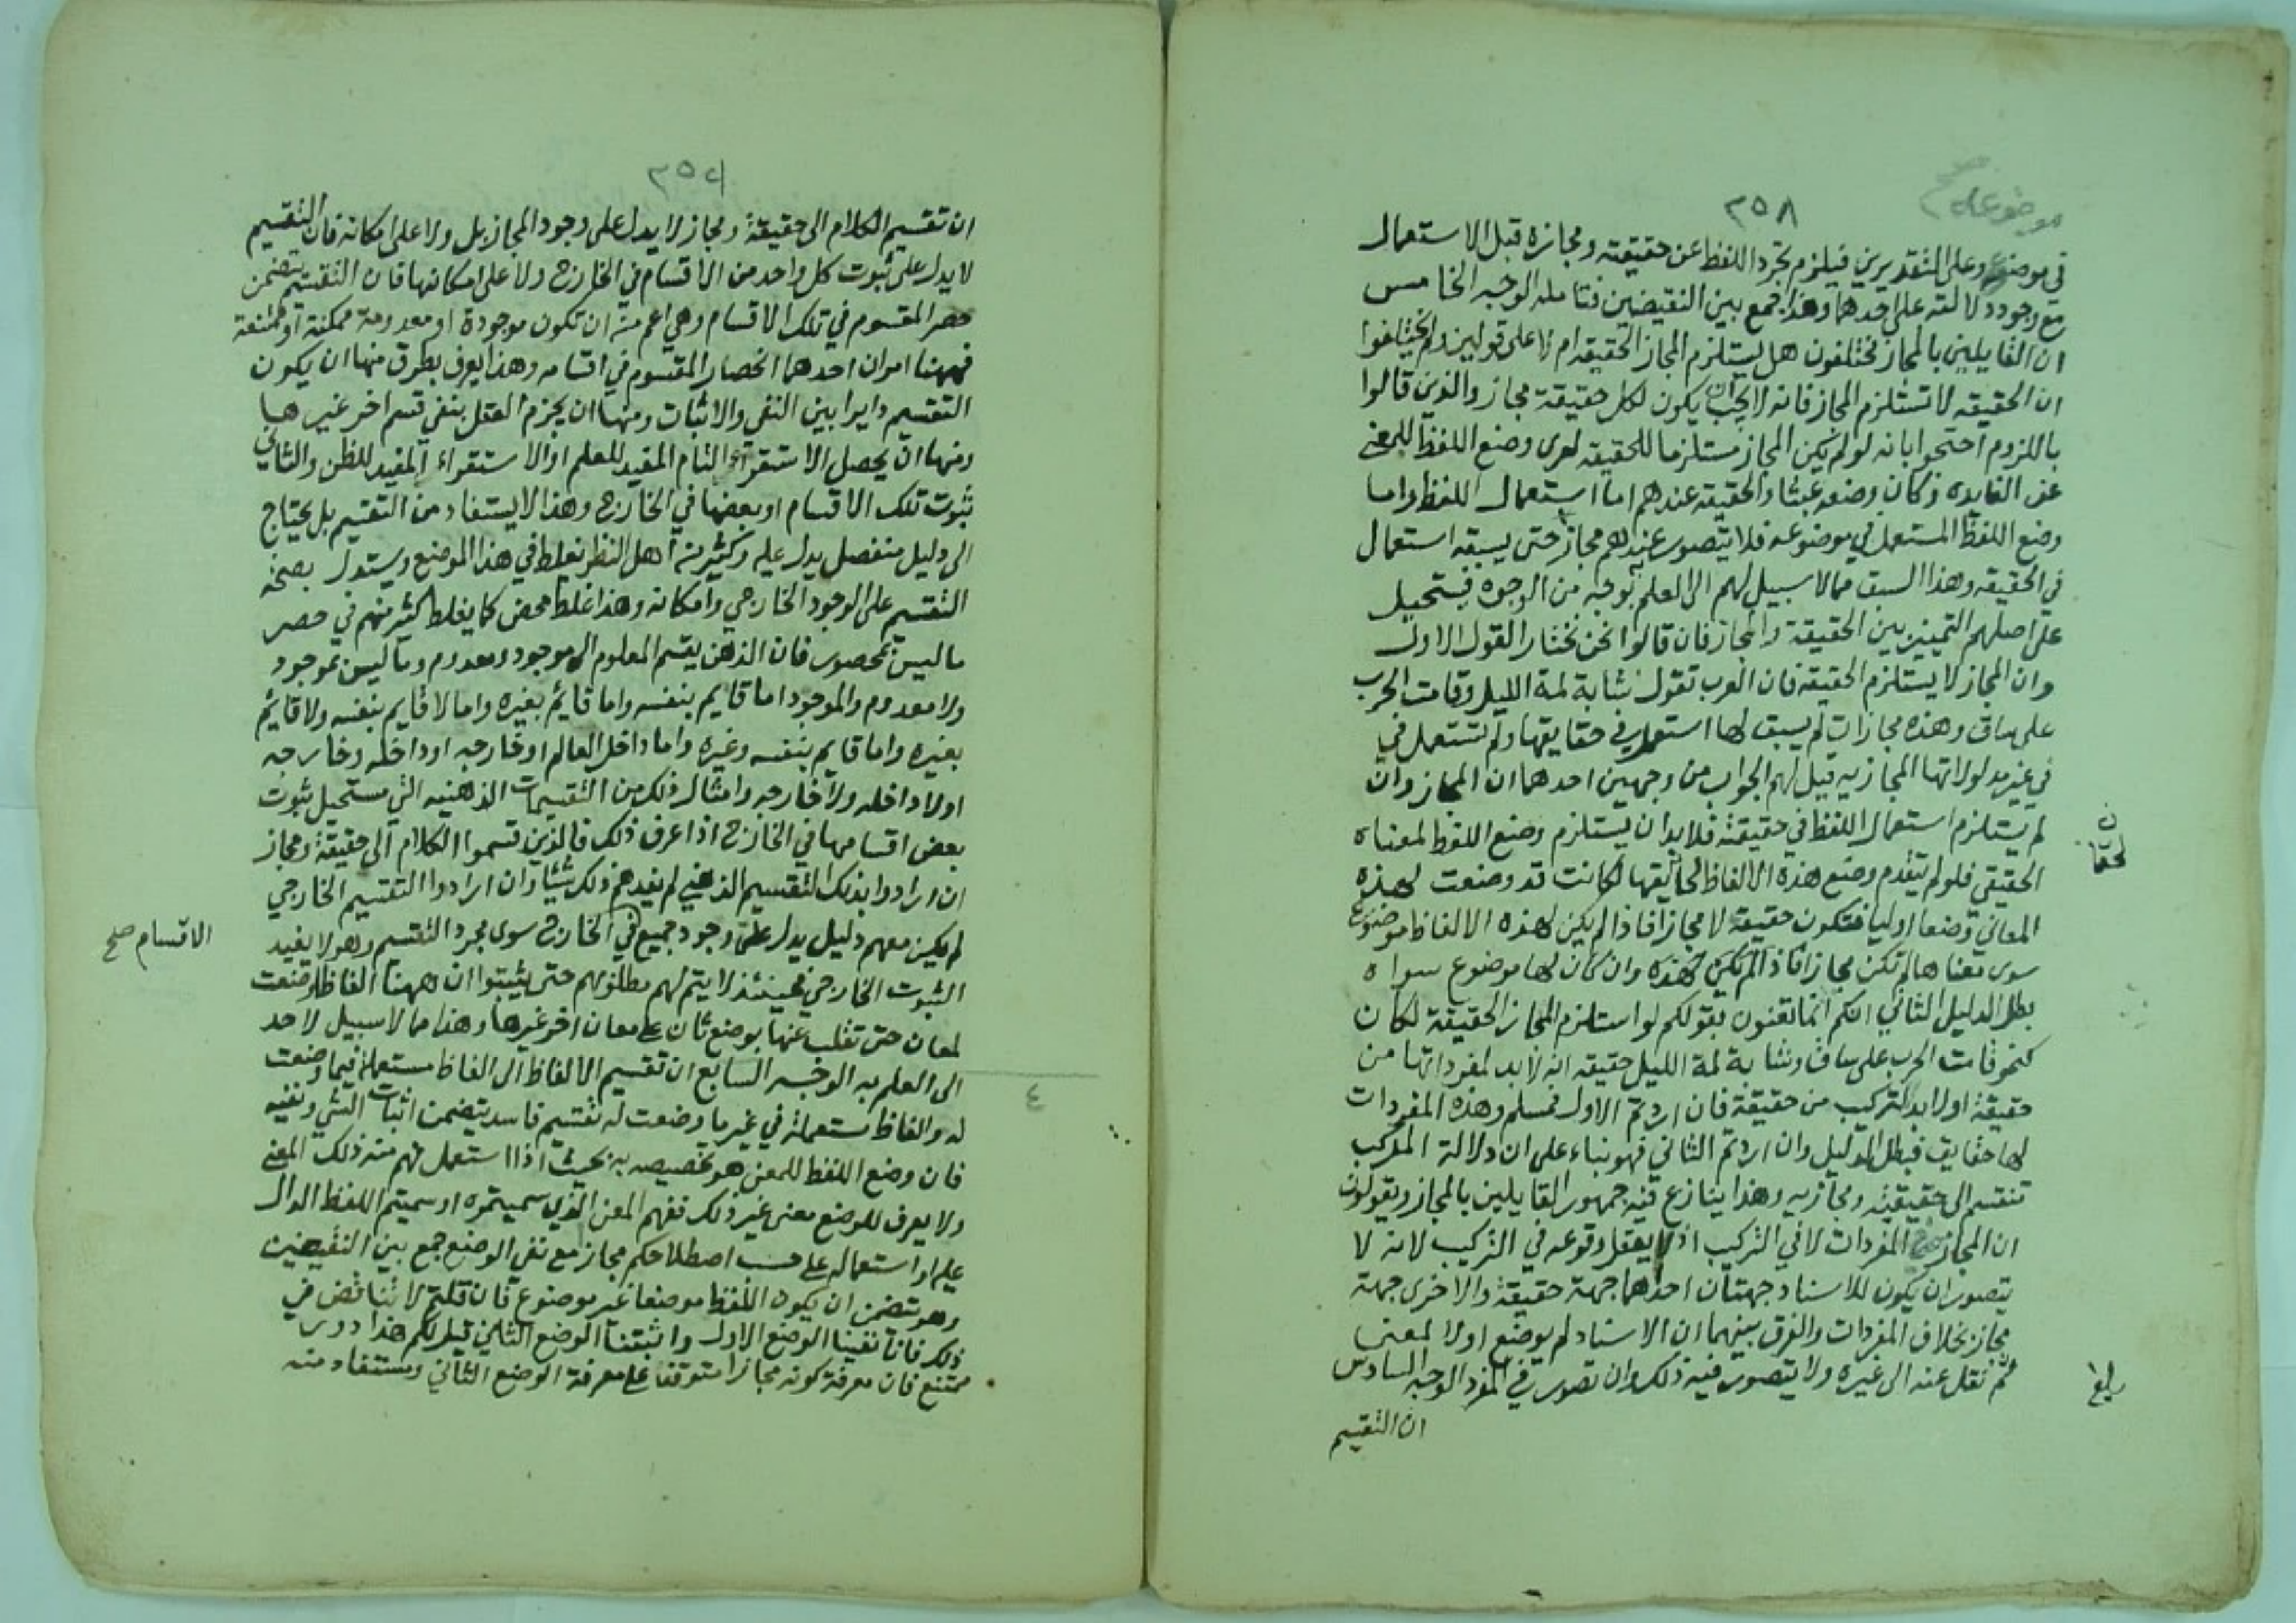 موضوعه صح
٢٥٨
في موضوعه وعلى التقديرين فيلزم تجرد اللفظ عن حقيقته ومجازه قبل الاستعمال
مع وجود دلالته على احدهما وهذا جمع بين النقيضين فتامله الوجه الخامس
ان القايلين بالمجاز مختلفون هل يستلزم المجاز الحقيقه ام لا على قولين ولم يختلفوا
ان الحقيقه لا تستلزم المجاز فانه لا يجب ان يكون لكل حقيقة مجاز والذين قالوا
باللزوم احتجوا بانه لو لم يكن المجاز مستلزما للحقيقه لعرى وضع اللفظ للمعنى
عن الفايده وكان وضعه عبثا والحقيقة عندهم اما استعمال اللفظ واما
وضع اللفظ المستعمل في موضوعه فلا يتصور عندهم مجاز حتى يسبقه استعمال
في الحقيقه وهذا السبق مما لا سبيل لهم الى العلم به بوجه من الوجوه فيستحيل
على اصلهم التمييز بين الحقيقة والمجاز فان قالوا نحن نختار القول الاول
وان المجاز لا يستلزم الحقيقه فان العرب تقول شابة لمة الليل وقامت الحرب
على ساق وهذه مجازات لم يسبق لها استعمال في حقايقها ولم تستعمل في
في غير مدلولاتها المجازيه قيل لهم الجواب من وجهين احدهما ان المجاز وان
لم يستلزم استعمال اللفظ في حقيقته فلا بد ان يستلزم وضع اللفظ لمعناه
الحقيقي فلو لم يتقدم وضع هذه الالفاظ لحقايقها لكانت قد وضعت لهذه
المعاني وضعا اوليا فتكون حقيقة لا مجازا فاذا لم يكن لهذه الالفاظ موضوع
سوى معناها لم تكن مجازا فاذا لم تكن لهذه وان كان لها موضوع سواه
بطل الدليل الثاني انكم انما تعنون بقولكم لو استلزم المجاز الحقيقة لكان
كنحو قامت الحرب على ساق وشابة لمة الليل حقيقه انه لا بد لمفرداتها من
حقيقة او لا بد للتركيب من حقيقة فان اردتم الاول فمسلم وهذه المفردات
لها حقايق فبطل الدليل وان اردتم الثاني فهو بناء على ان دلالة المركب
تنقسم الى حقيقيه ومجازيه وهذا ينازع فيه جمهور القايلين بالمجاز ويقولون
ان المجاز في المفردات لا في التركيب اذ لا يعقل وقوعه في التركيب لانه لا
يتصور ان يكون للاسناد جهتان احداهما جهة حقيقة والاخرى جهة
مجاز بخلاف المفردات والفرق بينهما ان الاسناد لم يوضع اولا لمعنى
ثم نقل عنه الى غيره ولا يتصور فيه ذلك وان تصور في المفرد الوجه السادس
بلغ
ان التقسيم
ان تقسيم الكلام الى حقيقة ومجاز لا يدل على وجود المجاز بل ولا على امكانه فان التقسيم
لا يدل على ثبوت كل واحد من الاقسام في الخارج ولا على امكانها فان التقسيم يتضمن
حصر المقسوم في تلك الاقسام وهي اعم من ان تكون موجودة او معدومة ممكنة او ممتنعة
فههنا امران احدهما انحصار المقسوم في اقسامه وهذا يعرف بطرق منها ان يكون
التقسيم دايرا بين النفي والاثبات ومنها ان يجزم العقل بنفي قسم اخر غيرها
ومنها ان يحصل الاستقراء التام المفيد للعلم او الاستقراء المفيد للظن والثاني
ثبوت تلك الاقسام او بعضها في الخارج وهذا لا يستفاد من التقسيم بل يحتاج
الى دليل منفصل يدل عليه وكثير من اهل النظر يغلط في هذا الموضع ويستدل بصحة
التقسيم على الوجود الخارجي وامكانه وهذا غلط محض كما يغلط كثير منهم في حصر
ما ليس بمحصور فان الذهن يقسم المعلوم الى موجود ومعدوم وما ليس بموجود
ولا معدوم والموجود اما قايم بنفسه واما قايم بغيره واما لا قايم بنفسه ولا قايم
بغيره واما قايم بنفسه وغيره واما داخل العالم او خارجه او داخله وخارجه
او لا داخله ولا خارجه وامثال ذلك من التقسيمات الذهنيه التي يستحيل ثبوت
بعض اقسامها في الخارج اذا عرف ذلك فالذين قسموا الكلام الى حقيقة ومجاز
ان ارادوا بذلك التقسيم الذهني لم يفدهم ذلك شيئا وان ارادوا التقسيم الخارجي
لم يكن معهم دليل يدل على وجود جميع في الخارج سوى مجرد التقسيم وهو لا يفيد
الاقسام صح
الثبوت الخارجي فحينئذ لا يتم لهم مطلوبهم حتى يثبتوا ان ههنا الفاظا وضعت
لمعان حتى تقلب عنها بوضع ثان على معان اخر غيرها وهذا مما لا سبيل لاحد
الى العلم به الوجه السابع ان تقسيم الالفاظ الى الفاظ مستعملة فيما وضعت
٤
له والفاظ مستعملة في غير ما وضعت له تقسيم فاسد يتضمن اثبات الشي ونفيه
فان وضع اللفظ للمعنى هو تخصيصه به بحيث اذا استعمل فهم منه ذلك المعنى
ولا يعرف للوضع معنى غير ذلك ففهم المعنى الذي سميتموه او سميتم اللفظ الدال
عليه او استعماله على حسب اصطلاحكم مجاز مع نفي الوضع جمع بين النقيضين
وهو يتضمن ان يكون اللفظ موضوعا غير موضوع فان قلتم لا تناقض في
ذلك فانا نفينا الوضع الاول واثبتنا الوضع الثاني قيل لكم هذا دور
ممتنع فان معرفة كونه مجازا متوقفا على معرفة الوضع الثاني ومستفاد منه